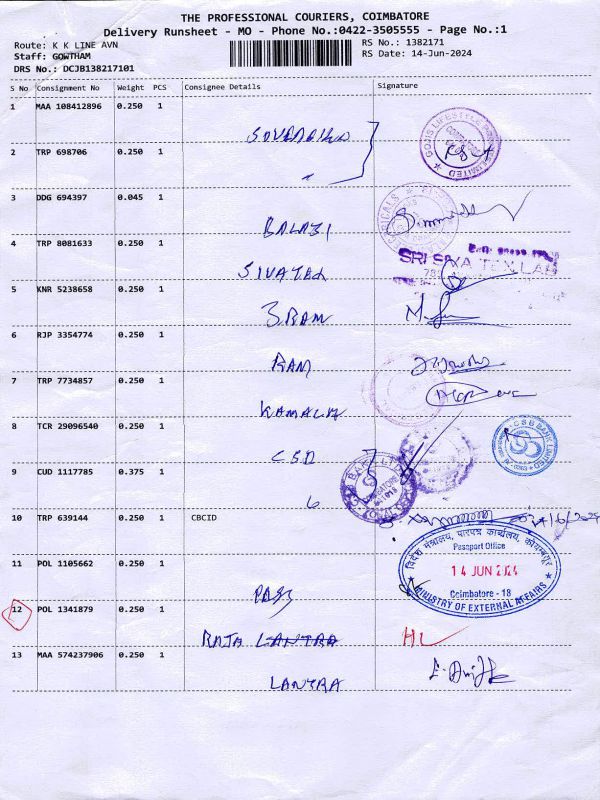 THE PROFESSIONAL COURIERS, COIMBATORE
Delivery Runsheet - MO - Phone No.:0422-3505555 - Page No.:1
Route: K K LINE AVN
Staff: GOWTHAM
DRS No.: DCJB138217101
RS No.: 1382171
RS Date: 14-Jun-2024
S No Consignment No Weight PCS Consignee Details Signature
1 MAA 108412896 0.250 1
2 TRP 698706 0.250 1
3 DDG 694397 0.045 1
BALAJI
4 TRP 8081633 0.250 1
SIVATEX
SRI SIVA TEX LAB
5 KNR 5238658 0.250 1
SRAM
6 RJP 3354774 0.250 1
RAM
7 TRP 7734857 0.250 1
KAMALM
8 TCR 29096540 0.250 1
CSB
CSB BANK LIMITED
9 CUD 1117785 0.375 1
10 TRP 639144 0.250 1 CBCID
विदेश मंत्रालय, पारपत्र कार्यालय, कोयम्बटूर
Passport Office
11 POL 1105662 0.250 1
14 JUN 2024
Coimbatore - 18
MINISTRY OF EXTERNAL AFFAIRS
PASS
12 POL 1341879 0.250 1
RAJA LANTRA
13 MAA 574237906 0.250 1
LANTRA